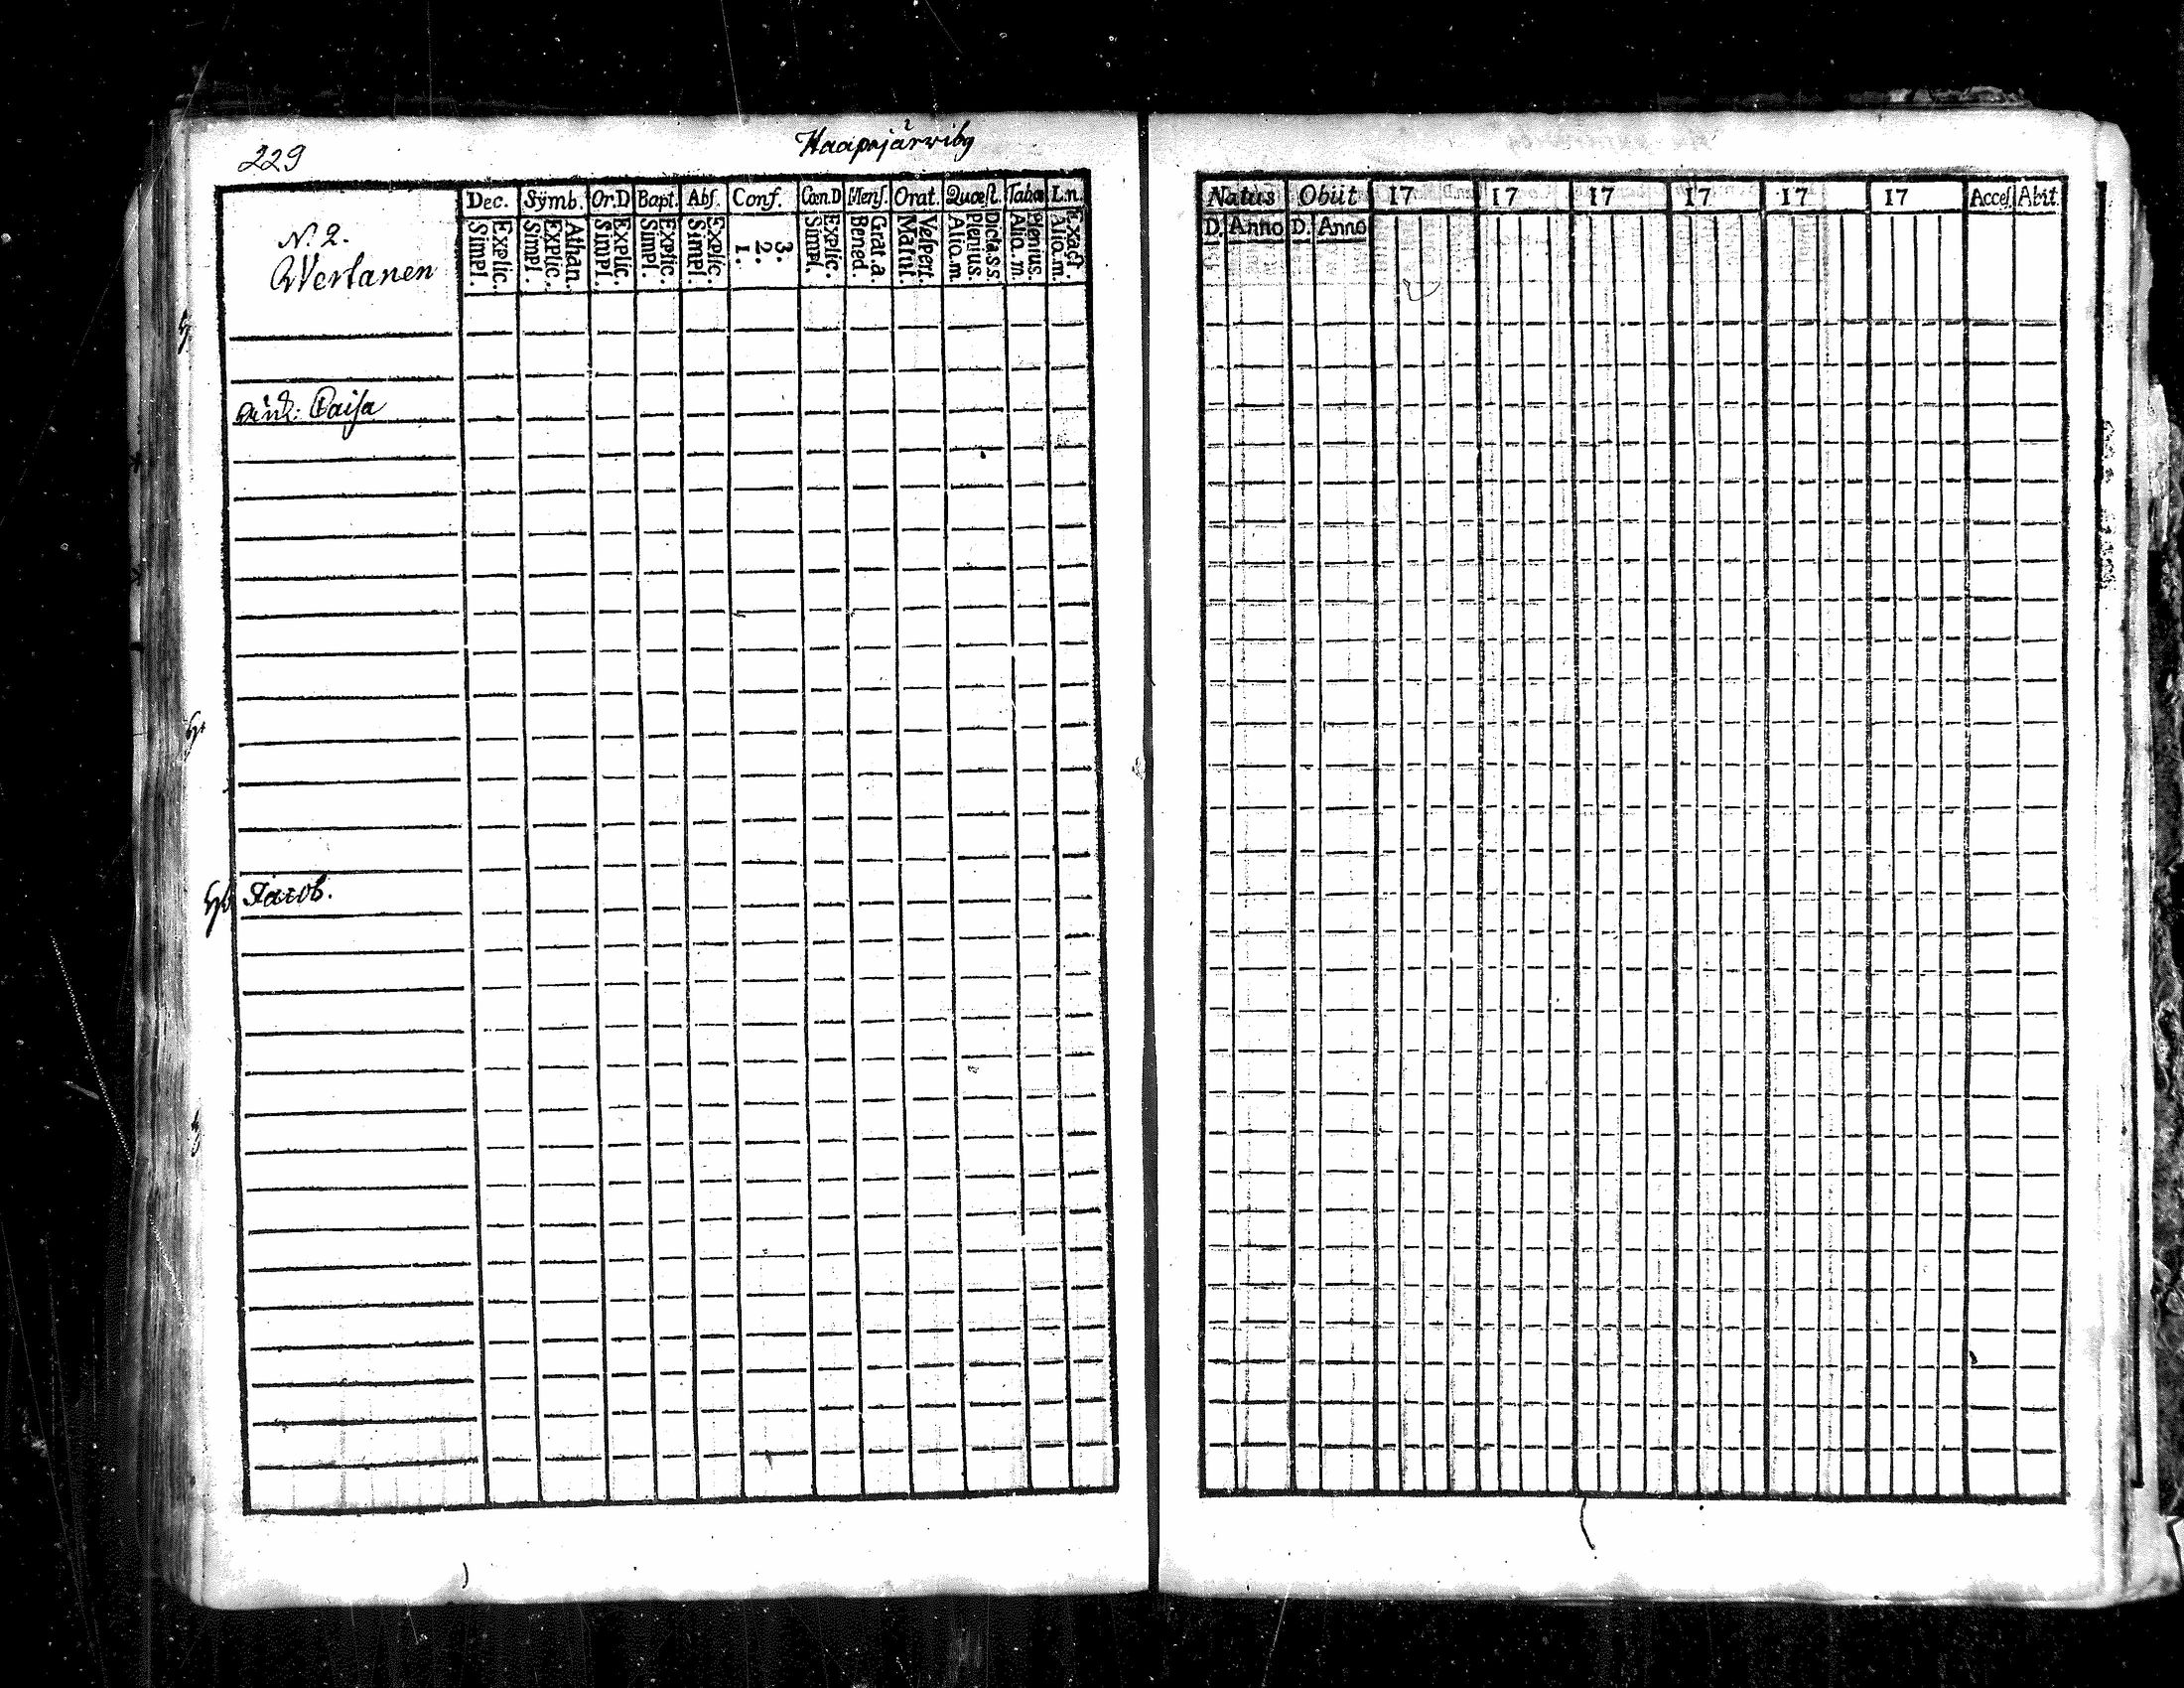 229
Haapajärviby
N. 2.
Wertanen
Dec. Sÿmb. Or.D Bapt. Abſ. Conf. Cœn.D Menſ. Orat. Quœſt. Tabœ L.n.
Simpl. Explic. Simpl. Explic. Athan. Simpl. Explic. Simpl. Explic. Simpl. Explic. 1. 2. 3. Simpl. Explic. Bened. Grat.a. Matut. Veſpert. Alio.m. Plenius. Dicta.s.s. Alio.m. Plenius. Alio.m. Exact.
Enk: Caiſa
Jacob.
Natus Obiit 17 17 17 17 17 17 Acceſ. Abit.
D. Anno D. Anno